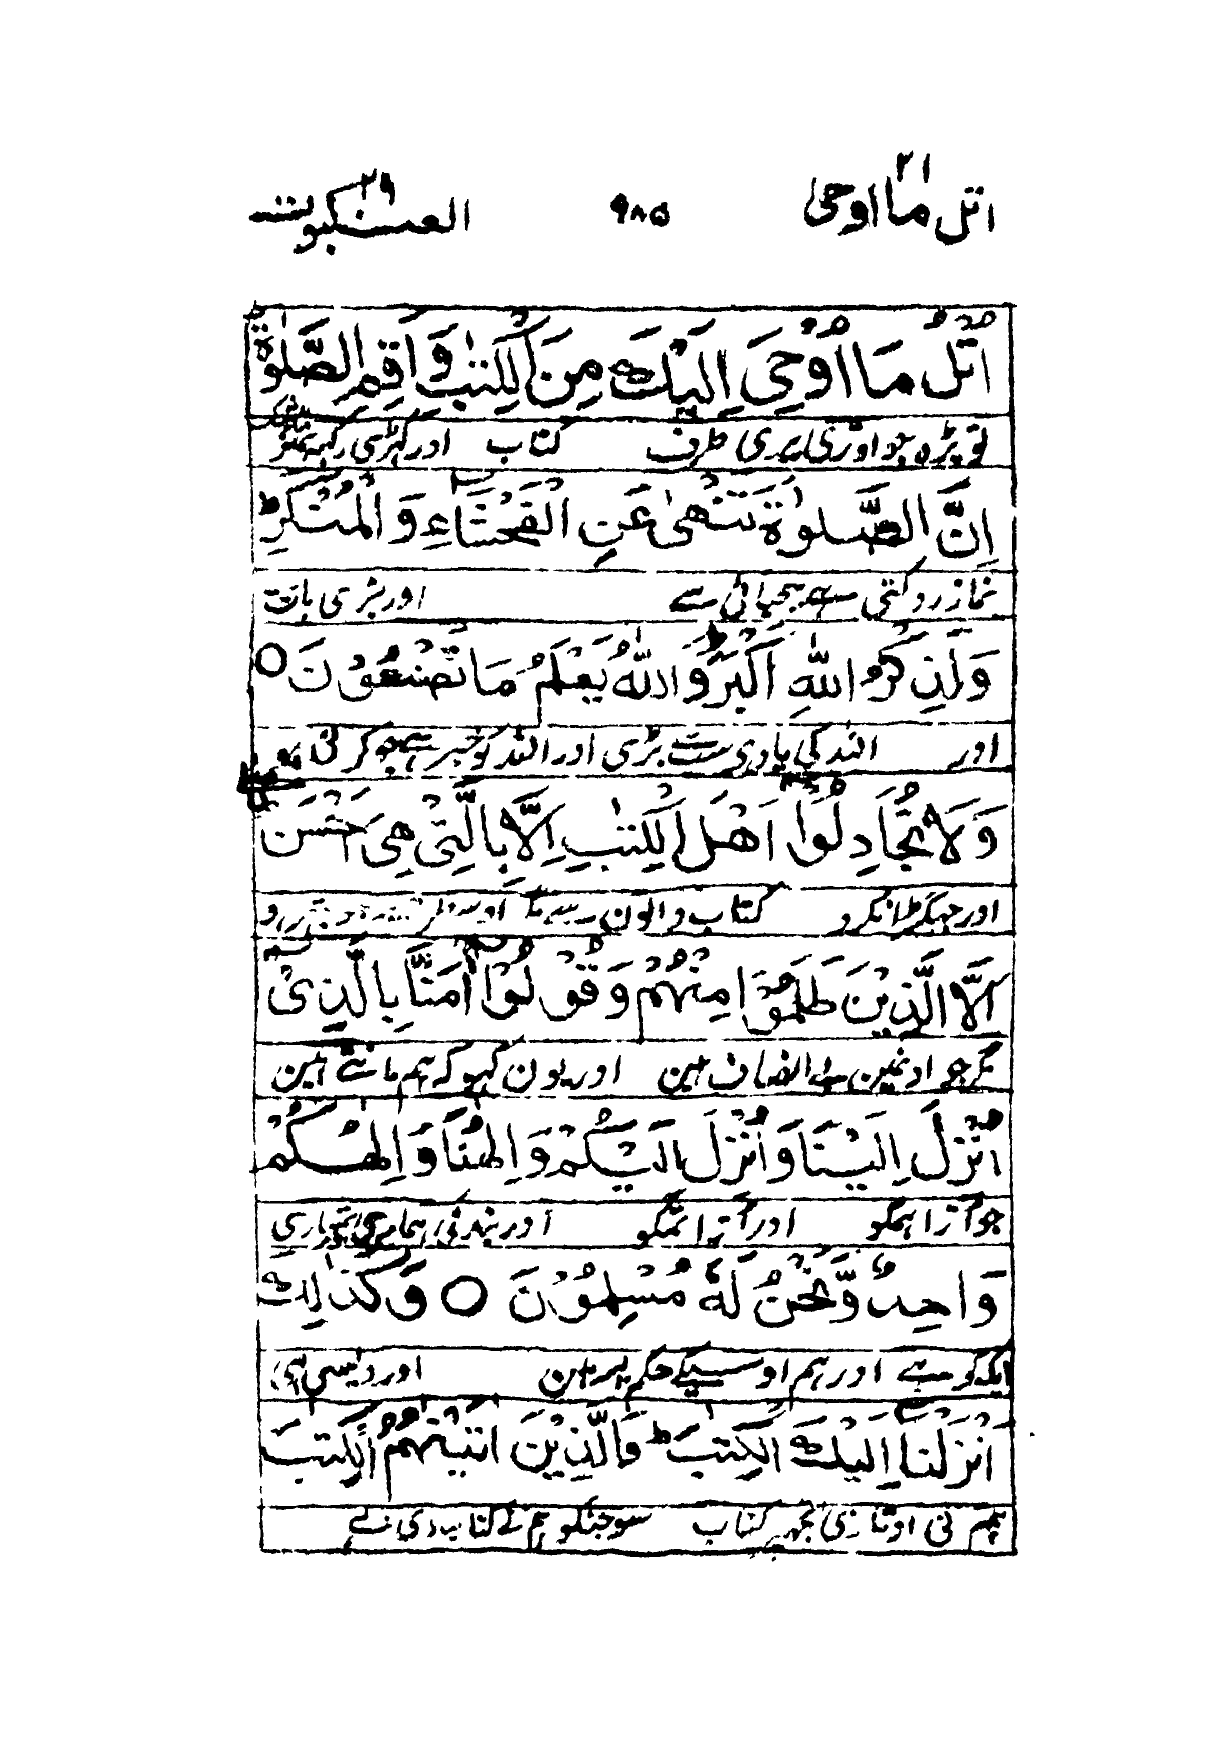 اتل ما اوحی ٢١ ٩٨٥ العنکبوت ٢٩
اُتْلُ مَا اُوْحِیَ اِلَیْكَ مِنَ الْکِتٰبِ وَ اَقِمِ الصَّلٰوةَ
تو پڑہ جو اوتری تیری طرف کتاب اور کہڑی رکہہ نماز
اِنَّ الصَّلٰوةَ تَنْهٰی عَنِ الْفَحْشَآءِ وَ الْمُنْکَرِ ط
نماز روکتی ہے بیحیائی سے اور بری بات
وَ لَذِکْرُ اللّٰهِ اَکْبَرُ وَ اللّٰهُ یَعْلَمُ مَا تَصْنَعُوْنَ ○
اور اللہ کی یاد ہی سب سے بڑی اور اللہ کو خبر ہے جو کرتی ہو
وَ لَا تُجَادِلُوْا اَهْلَ الْکِتٰبِ اِلَّا بِالَّتِیْ هِیَ اَحْسَنُ
اور جہگڑا نکرو کتاب والون سے مگر
اِلَّا الَّذِیْنَ ظَلَمُوْا مِنْهُمْ وَ قُوْلُوْا اٰمَنَّا بِالَّذِیْ
مگر جو اونمین بی انصاف ہین اور یون کہو کہ ہم مانتے ہین
اُنْزِلَ اِلَیْنَا وَ اُنْزِلَ اِلَیْکُمْ وَ اِلٰهُنَا وَ اِلٰهُکُمْ
جو اُترا ہمکو اور اُترا تمکو اور بندگی ہماری تمہاری
وَاحِدٌ وَّ نَحْنُ لَهٗ مُسْلِمُوْنَ ○ وَ کَذٰلِكَ
ایک کو ہے اور ہم اوسیکے حکم پر ہین اور ویسی ہی
اَنْزَلْنَا اِلَیْكَ الْکِتٰبَ ط فَالَّذِیْنَ اٰتَیْنٰهُمُ الْکِتٰبَ
ہم نی اوتاری تجہپر کتاب سو جنکو ہم نے کتاب دی ہے